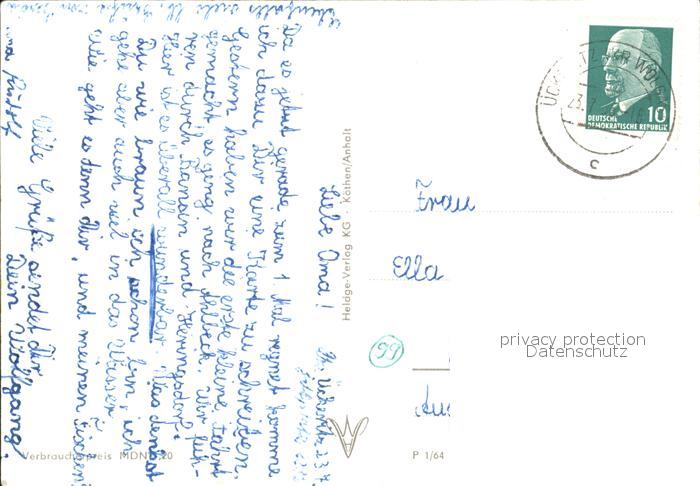 Ückeritz, 23.7.
Liebe Oma!
Da es jetzt gerade zum 1. Mal regnet komme
ich dazu Dir eine Karte zu schreiben.
Gestern haben wir die erste kleine Fahrt
gemacht, es ging nach Ahlbeck. Wir fuh-
ren durch Bansin und Heringsdorf.
Hier ist es überall wunderbar. Was denkst
Du wie braun ich schon bin, ich
gehe aber auch viel in das Wasser.
Wie geht es denn Dir, und meinen Fischen?
Viele Grüße sendet Dir
Dein Wolfgang.
Ebenfalls viele
und Rudolf
Heldge-Verlag KG Köthen/Anhalt
Verbraucherpreis MDN 0,20
P 1/64
10
DEUTSCHE
DEMOKRATISCHE REPUBLIK
KR WOL
23.7.
c
Frau
Ella
59
privacy protection
Datenschutz